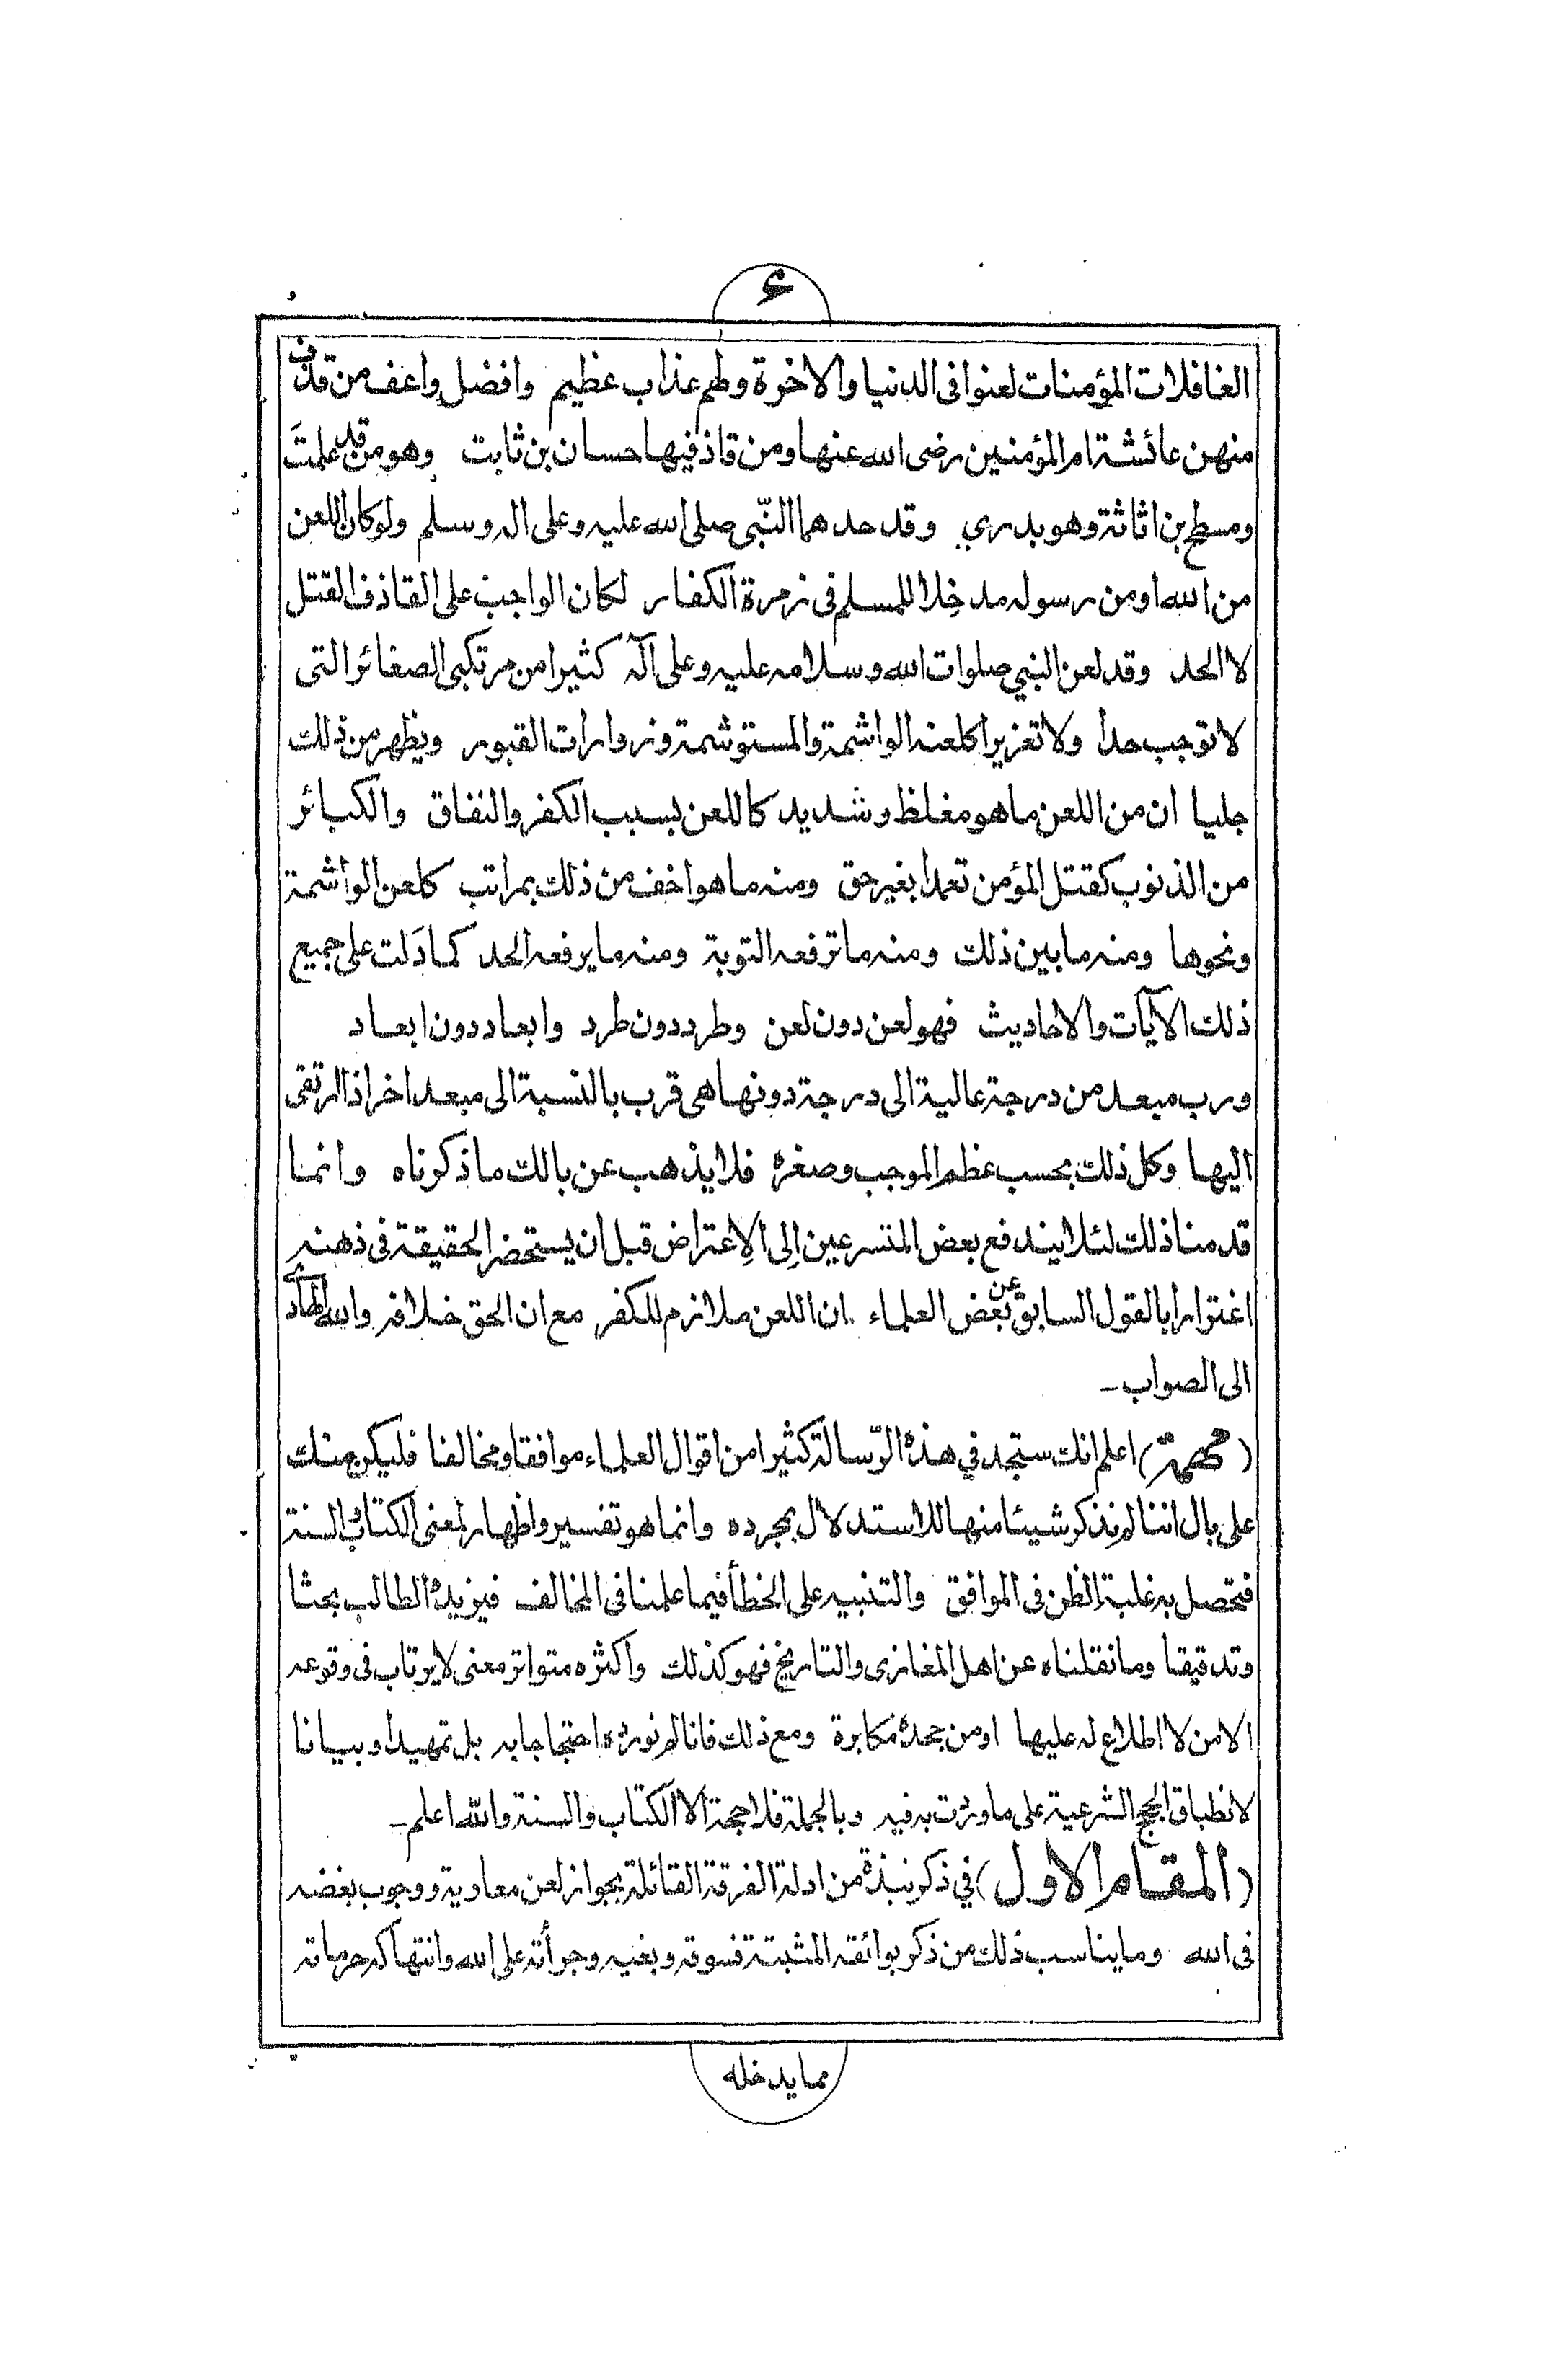 ۶
الغافلات المؤمنات لعنوا فى الدنيا والاخرة ولهم عذاب عظيم وافضل واعف من قذف
منهن عائشة ام المؤمنين رضى الله عنها ومن قاذفيها حسان بن ثابت وهو من قد علمتَ
ومسطح بن اثاثة وهو بدري وقد حدهما النّبى صلى الله عليه وعلى اله وسلم ولو كان اللعن
من الله او من رسوله مدخِلا للمسلم فى زمرة الكفار لكان الواجب على القاذف القتل
لا الحد وقد لعن النبي صلوات الله وسلامه عليه وعلى آله كثيرا من مرتكبى الصغائر التى
لا توجب حدا ولا تعزيرا كلعنه الواشمة والمستوشمة وزوارات القبور ويظهر من ذلك
جليا ان من اللعن ما هو مغلظ وشديد كاللعن بسبب الكفر والنفاق والكبائر
من الذنوب كقتل المؤمن تعمدا بغير حق ومنه ما هو اخف من ذلك بمراتب كلعن الواشمة
ونحوها ومنه ما بين ذلك ومنه ما ترفعه التوبة ومنه ما يرفعه الحد كما دَلت على جميع
ذلك الآيات والاحاديث فهو لعن دون لعن وطرد دون طرد وابعاد دون ابعاد
ورب مبعد من درجة عالية الى درجة دونها هى قرب بالنسبة الى مبعد اخر اذا ارتقى
اليها وكل ذلك بحسب عظم الموجب وصغره فلا يذهب عن بالك ما ذكرناه وانما
قدمنا ذلك لئلا يندفع بعض المتسرعين إلى الاعتراض قبل ان يستحضر الحقيقة فى ذهنه
اغترارا بالقول السابق عن بعض العلماء ان اللعن ملازم للكفر مع ان الحق خلافه والله الهادى
الى الصواب ـ
(مهمة) اعلم انك ستجد في هذه الرّسالة كثيرا من اقوال العلماء موافقا ومخالفا فليكن منك
على بال اننا لم نذكر شيئا منها للاستدلال بمجرده وانما هو تفسير واظهار لمعنى الكتاب والسنة
فتحصل به غلبة الظن فى الموافق والتنبيه على الخطأ فيما علمنا فى المخالف فيزيده الطالب بحثا
وتدقيقا وما نقلناه عن اهل المغازى والتاريخ فهو كذلك واكثره متواتر معنى لا يرتاب فى وقوعه
الا من لا اطلاع له عليها او من جحده مكابرة ومع ذلك فانا لم نورده احتجاجا به بل تمهيدا وبيانا
لانطباق الحجج الشرعية على ما وردت به فيه وبالجملة فلا حجة الا الكتاب والسنة والله اعلم ـ
(المقام الاول) في ذكر نبذة من ادلة الفرقة القائلة بجواز لعن معاوية ووجوب بغضه
فى الله وما يناسب ذلك من ذكر بوائقه المثبتة فسوقه وبغيه وجرأته على الله وانتهاكه حرماته
مما يدخله